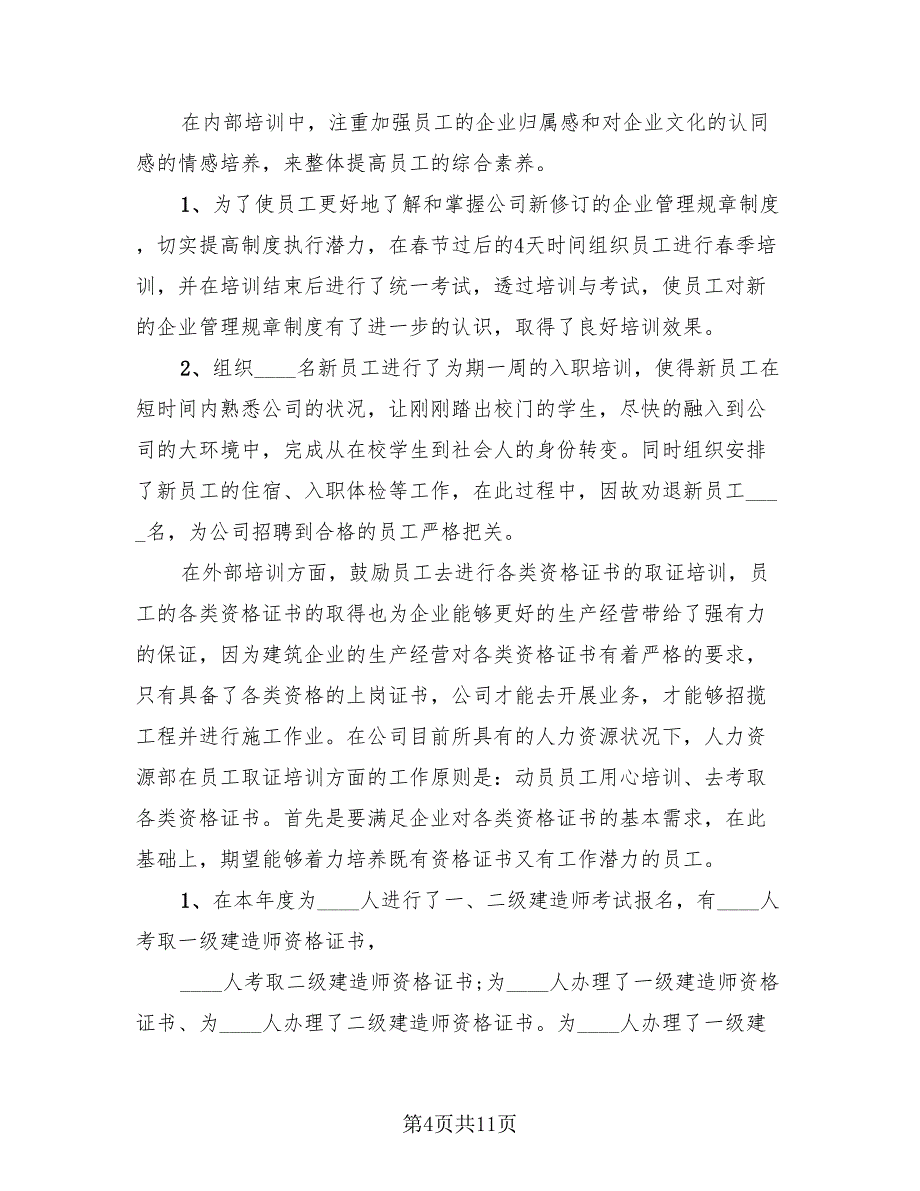 在内部培训中，注重加强员工的企业归属感和对企业文化的认同
感的情感培养，来整体提高员工的综合素养。
1、为了使员工更好地了解和掌握公司新修订的企业管理规章制度
，切实提高制度执行潜力，在春节过后的4天时间组织员工进行春季培
训，并在培训结束后进行了统一考试，透过培训与考试，使员工对新
的企业管理规章制度有了进一步的认识，取得了良好培训效果。
2、组织____名新员工进行了为期一周的入职培训，使得新员工在
短时间内熟悉公司的状况，让刚刚踏出校门的学生，尽快的融入到公
司的大环境中，完成从在校学生到社会人的身份转变。同时组织安排
了新员工的住宿、入职体检等工作，在此过程中，因故劝退新员工___
_名，为公司招聘到合格的员工严格把关。
在外部培训方面，鼓励员工去进行各类资格证书的取证培训，员
工的各类资格证书的取得也为企业能够更好的生产经营带给了强有力
的保证，因为建筑企业的生产经营对各类资格证书有着严格的要求，
只有具备了各类资格的上岗证书，公司才能去开展业务，才能够招揽
工程并进行施工作业。在公司目前所具有的人力资源状况下，人力资
源部在员工取证培训方面的工作原则是：动员员工用心培训、去考取
各类资格证书。首先是要满足企业对各类资格证书的基本需求，在此
基础上，期望能够着力培养既有资格证书又有工作潜力的员工。
1、在本年度为____人进行了一、二级建造师考试报名，有____人
考取一级建造师资格证书，
____人考取二级建造师资格证书;为____人办理了一级建造师资格
证书、为____人办理了二级建造师资格证书。为____人办理了一级建
第4页共11页